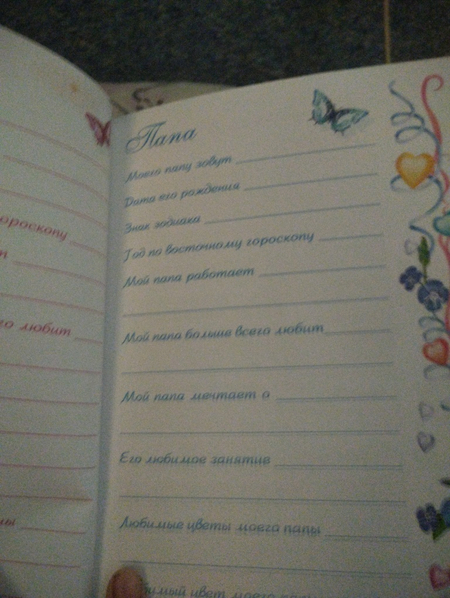 ороскопу
т
го любит
мы
Папа
Моего папу зовут
Дата его рождения
Знак зодиака
Год по восточному гороскопу
Мой папа работает
Мой папа больше всего любит
Мой папа мечтает о
Его любимое занятие
Любимые цветы моего папы
бимый цвет моего